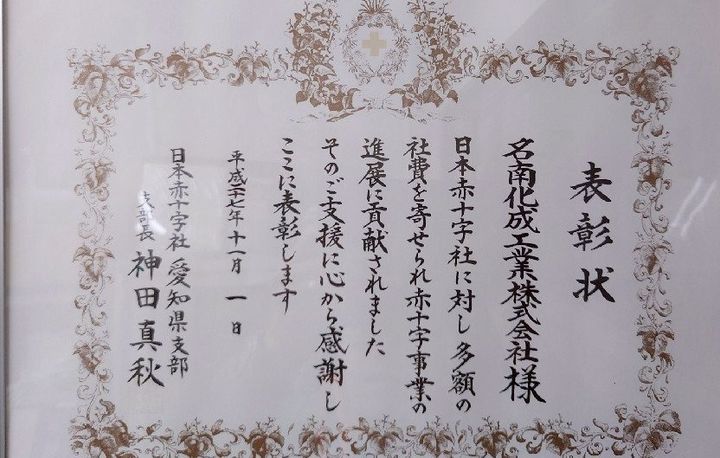 表彰状
名南化成工業株式会社様
日本赤十字社に対し多額の
社費を寄せられ赤十字事業の
進展に貢献されました
そのご支援に心から感謝し
ここに表彰します
平成二七年十一月一日
日本赤十字社愛知県支部
支部長 神田真秋